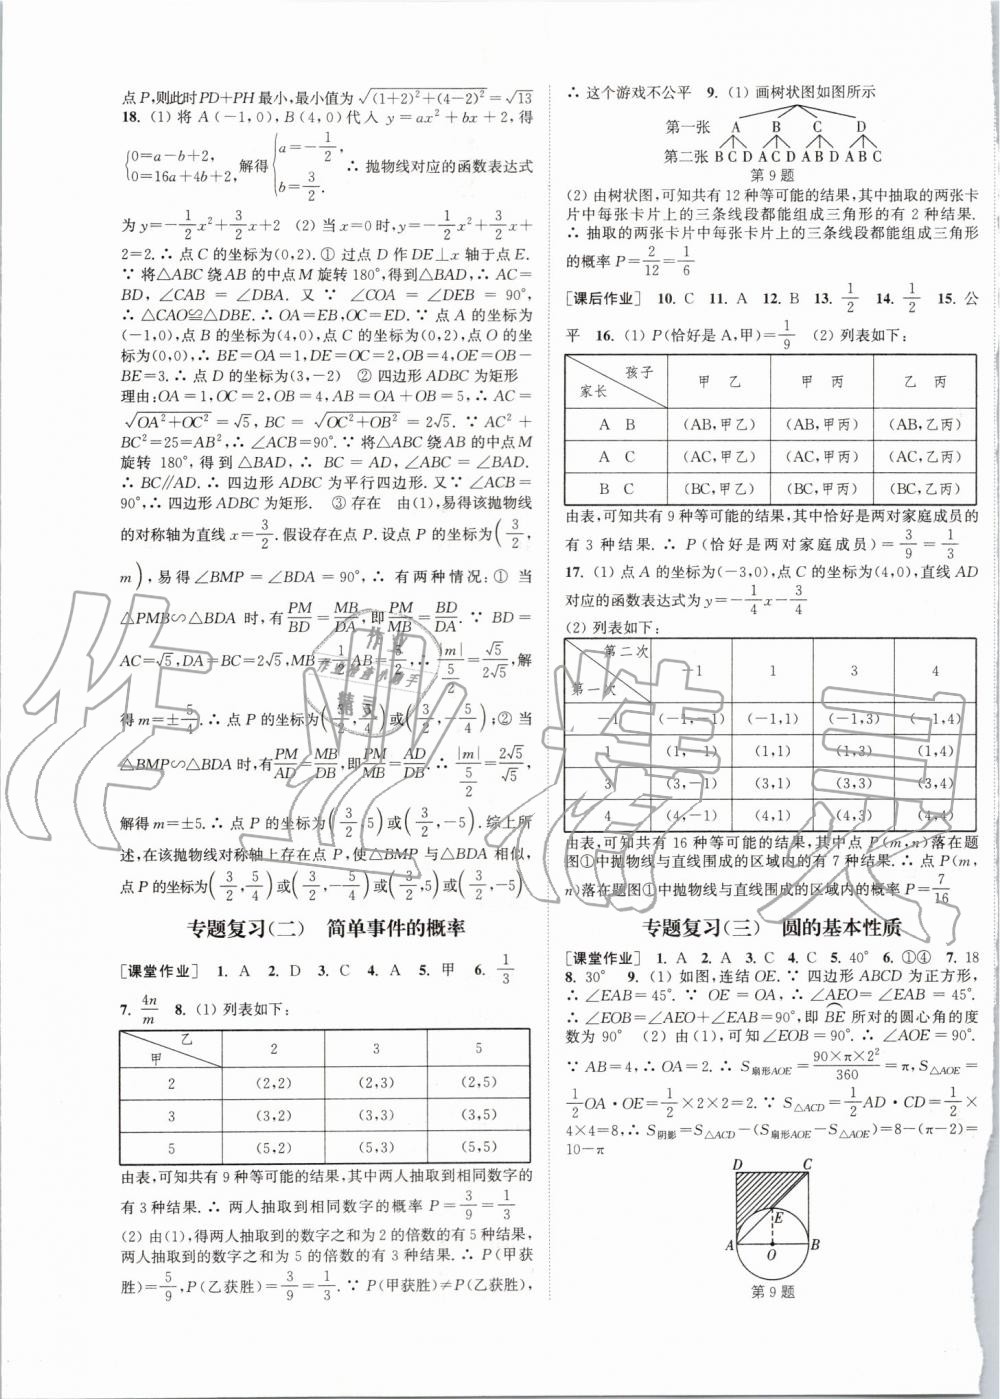 点P,则此时PD+PH最小,最小值为√((1+2)²+(4-2)²)=√13
18. (1) 将A(-1,0),B(4,0)代入 y=ax²+bx+2,得
{0=a-b+2, 0=16a+4b+2, 解得{a=-1/2, b=3/2. ∴ 抛物线对应的函数表达式
为y=-1/2x²+3/2x+2 (2) 当x=0时,y=-1/2x²+3/2x+
2=2.∴ 点C的坐标为(0,2).① 过点D作DE⊥x轴于点E.
∵ 将△ABC绕AB的中点M旋转180°,得到△BAD,∴ AC=
BD,∠CAB=∠DBA.又∵ ∠COA=∠DEB=90°,
∴ △CAO≌△DBE.∴ OA=EB,OC=ED.∵ 点A的坐标为
(-1,0),点B的坐标为(4,0),点C的坐标为(0,2),点O的坐
标为(0,0),∴ BE=OA=1,DE=OC=2,OB=4,OE=OB-
BE=3.∴ 点D的坐标为(3,-2) ② 四边形ADBC为矩形
理由:OA=1,OC=2,OB=4,AB=OA+OB=5,∴ AC=
√(OA²+OC²)=√5,BC=√(OC²+OB²)=2√5.∵ AC²+
BC²=25=AB²,∴ ∠ACB=90°.∵ 将△ABC绕AB的中点M
旋转180°,得到△BAD,∴ BC=AD,∠ABC=∠BAD.
∴ BC∥AD.∴ 四边形ADBC为平行四边形.又∵ ∠ACB=
90°,∴ 四边形ADBC为矩形. ③ 存在 由(1),易得该抛物线
的对称轴为直线x=3/2.假设存在点P.设点P的坐标为(3/2,
m),易得∠BMP=∠BDA=90°,∴ 有两种情况:① 当
△PMB∽△BDA时,有PM/BD=MB/DA,即PM/MB=BD/DA.∵ BD=
AC=√5,DA=BC=2√5,MB=1/2AB=5/2,∴ |m|/(5/2)=√5/(2√5),解
得m=±5/4.∴ 点P的坐标为(3/2,5/4)或(3/2,-5/4);② 当
△BMP∽△BDA时,有PM/AD=MB/DB,即PM/MB=AD/DB.∴ |m|/(5/2)=2√5/√5,
解得m=±5.∴ 点P的坐标为(3/2,5)或(3/2,-5).综上所
述,在该抛物线对称轴上存在点P,使△BMP与△BDA相似,
点P的坐标为(3/2,5/4)或(3/2,-5/4)或(3/2,5)或(3/2,-5)
专题复习(二) 简单事件的概率
[课堂作业] 1. A 2. D 3. C 4. A 5. 甲 6. 1/3
7. 4n/m 8. (1) 列表如下:
甲 乙 2 3 5
2 (2,2) (2,3) (2,5)
3 (3,2) (3,3) (3,5)
5 (5,2) (5,3) (5,5)
由表,可知共有9种等可能的结果,其中两人抽取到相同数字的
有3种结果.∴ 两人抽取到相同数字的概率P=3/9=1/3
(2) 由(1),得两人抽取到的数字之和为2的倍数的有5种结果,
两人抽取到的数字之和为5的倍数的有3种结果.∴ P(甲获
胜)=5/9,P(乙获胜)=3/9=1/3.∵ P(甲获胜)≠P(乙获胜),
∴ 这个游戏不公平 9. (1) 画树状图如图所示
第一张 A B C D
第二张 B C D A C D A B D A B C
第9题
(2) 由树状图,可知共有12种等可能的结果,其中抽取的两张卡
片中每张卡片上的三条线段都能组成三角形的有2种结果.
∴ 抽取的两张卡片中每张卡片上的三条线段都能组成三角形
的概率P=2/12=1/6
[课后作业] 10. C 11. A 12. B 13. 1/2 14. 1/2 15. 公
平 16. (1) P(恰好是A,甲)=1/9 (2) 列表如下:
家长 孩子 甲 乙 甲 丙 乙 丙
A B (AB,甲乙) (AB,甲丙) (AB,乙丙)
A C (AC,甲乙) (AC,甲丙) (AC,乙丙)
B C (BC,甲乙) (BC,甲丙) (BC,乙丙)
由表,可知共有9种等可能的结果,其中恰好是两对家庭成员的
有3种结果.∴ P(恰好是两对家庭成员)=3/9=1/3
17. (1) 点A的坐标为(-3,0),点C的坐标为(4,0),直线AD
对应的函数表达式为y=-1/4x-3/4
(2) 列表如下:
第一次 第二次 -1 1 3 4
-1 (-1,-1) (-1,1) (-1,3) (-1,4)
1 (1,-1) (1,1) (1,3) (1,4)
3 (3,-1) (3,1) (3,3) (3,4)
4 (4,-1) (4,1) (4,3) (4,4)
由表,可知共有16种等可能的结果,其中点P(m,n)落在题
图①中抛物线与直线围成的区域内的有7种结果.∴ 点P(m,
n)落在题图①中抛物线与直线围成的区域内的概率P=7/16
专题复习(三) 圆的基本性质
[课堂作业] 1. A 2. A 3. C 4. C 5. 40° 6. ①④ 7. 18
8. 30° 9. (1) 如图,连结OE.∵ 四边形ABCD为正方形,
∴ ∠EAB=45°.∵ OE=OA,∴ ∠AEO=∠EAB=45°.
∴ ∠EOB=∠AEO+∠EAB=90°,即BE所对的圆心角的度
数为90° (2) 由(1),可知∠EOB=90°.∴ ∠AOE=90°.
∵ AB=4,∴ OA=2.∴ S扇形AOE=(90×π×2²)/360=π,S△AOE=
1/2OA·OE=1/2×2×2=2.∵ S△ACD=1/2AD·CD=1/2×
4×4=8,∴ S阴影=S△ACD-(S扇形AOE-S△AOE)=8-(π-2)=
10-π
D C
E
A O B
第9题
作业精灵
作业
作业检查小助手
精灵